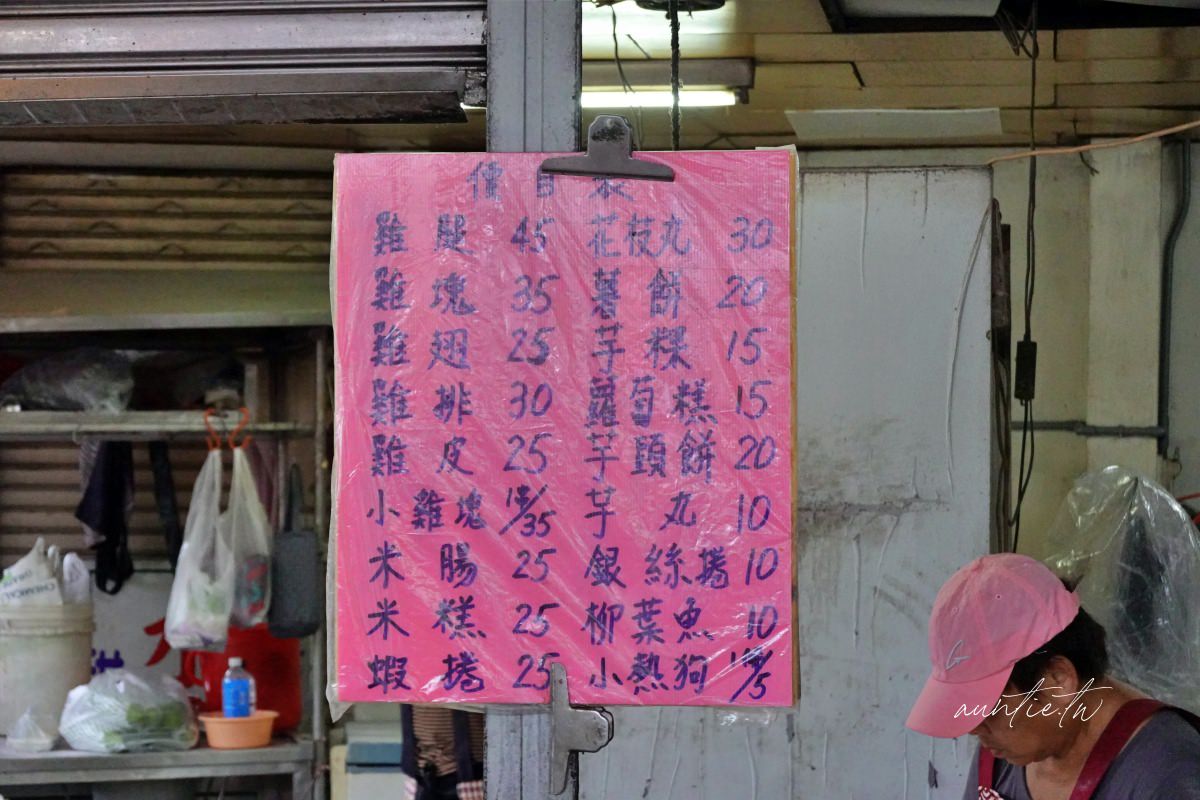 價目表
雞腿 45 花枝丸 30
雞塊 35 薯餅 20
雞翅 25 芋粿 15
雞排 30 蘿蔔糕 15
雞皮 25 芋頭餅 20
小雞塊 /35 芋丸 10
米腸 25 銀絲捲 10
米糕 25 柳葉魚 10
蝦捲 25 小熱狗 /5
auntie.tw